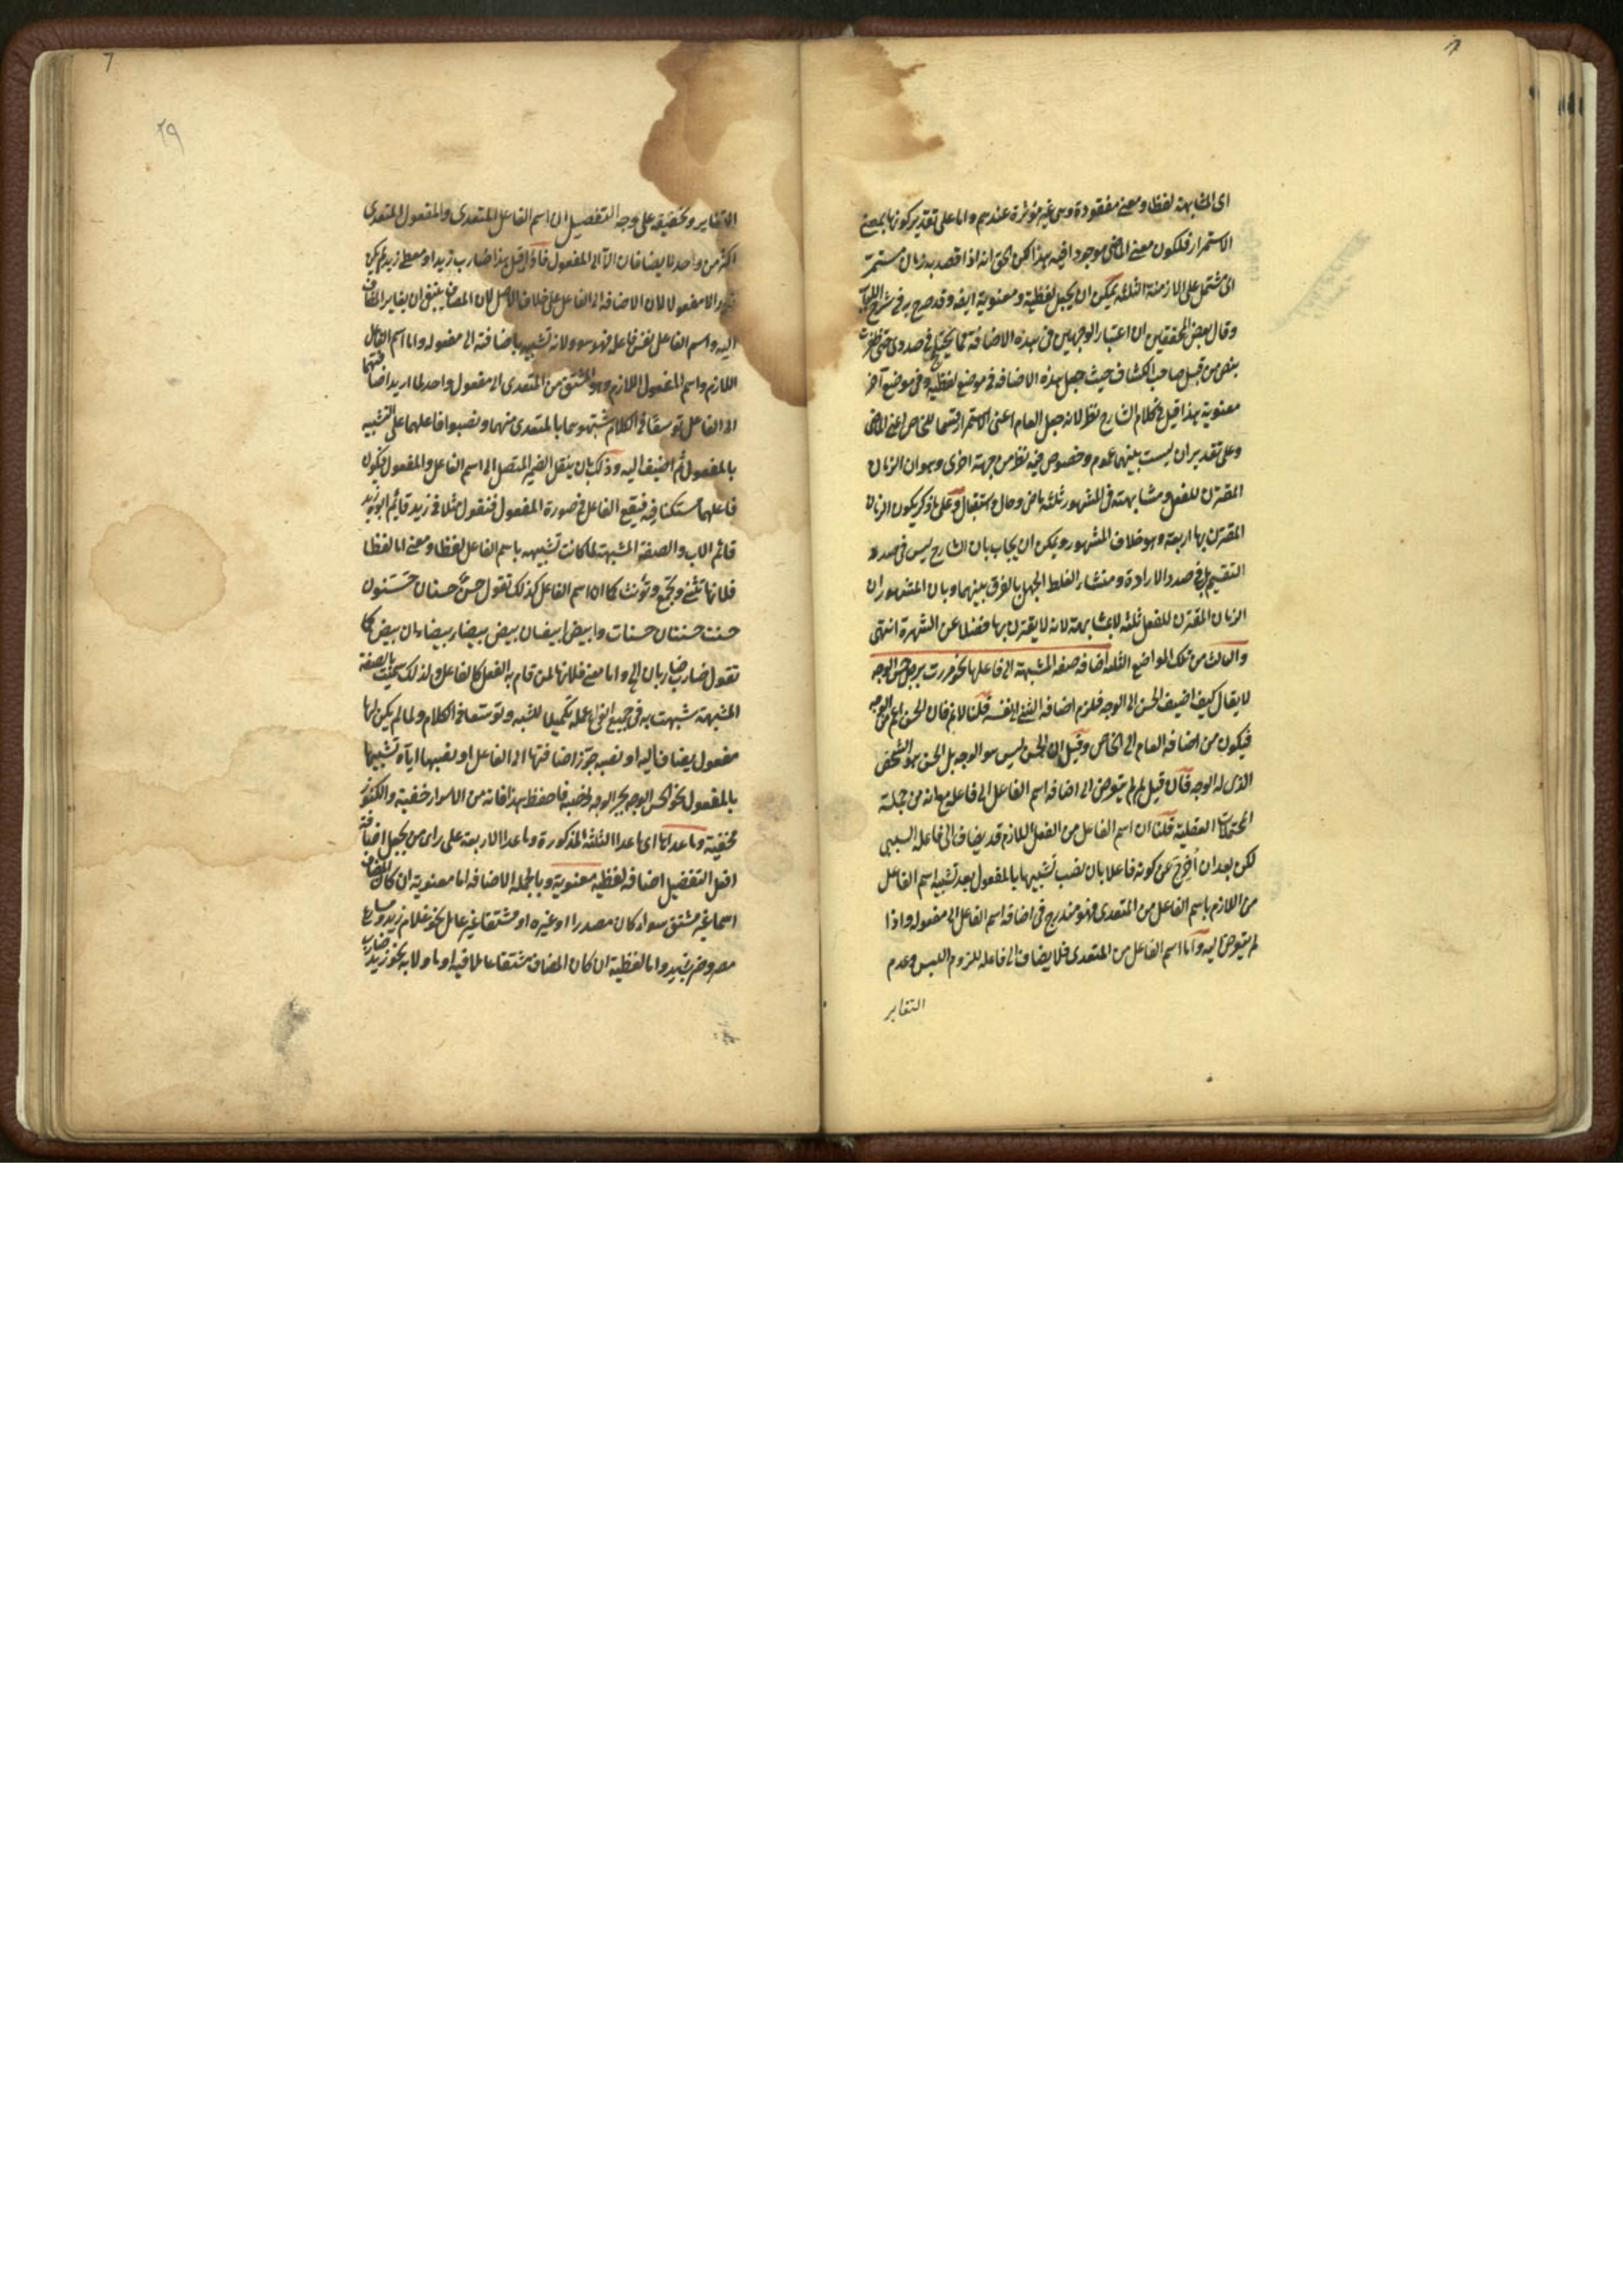 اى المشابهة لفظا ومعنى مفقودة وهى غير مؤثرة عندهم واما على تقدير كونها بمعنى
الاستمرار فلكون معنى الماضى موجودا فيه هذا لكن الحق انه اذا قصد به زمان مستمر
اى مشتمل على الازمنة الثلثة يمكن ان يجعل لفظية ومعنوية ايضا وقد صرح به فى شرح اللباب
وقال بعض المحققين ان اعتبار الوجهين فى هذه الاضافة مما يختلج فى صدرى حتى ظفرت
بنص من قبل صاحب الكشاف حيث جعل هذه الاضافة فى موضع لفظية وفى موضع آخر
معنوية هذا قيل فى كلام الشارح نظر لانه جعل العام اعنى الاستمرار قسما للخاص اعنى الماضى
وعلى تقدير ان ليست بينهما عموم وخصوص فيه نظر من جهة اخرى وهو ان الزمان
المقترن للفعل ومشابهته فى المشهور ثلثة ماض وحال واستقبال وعلى ما ذكر يكون الزمان
المقترن بها اربعة وهو خلاف المشهور ويمكن ان يجاب بان الشارح ليس فى صدد
التقسيم بل فى صدد الارادة ومنشاء الغلط الجهل بالفرق بينهما وبان المشهور ان
الزمان المقترن للفعل ثلثة لا مشابهته لانه لا يقترن بها فضلا عن الشهرة انتهى
والثالث من تلك المواضع الثلثة اضافة صفة المشبهة الى فاعلها نحو مررت برجل حسن الوجه
لا يقال كيف اضيف الحسن الى الوجه فلزم اضافة الشئ الى نفسه قلنا لا نم فان الحسن اعم من الوجه
فيكون من اضافة العام الى الخاص وقيل ان الحسن ليس هو الوجه بل الحسن هو الشخص
الذى له الوجه فان قيل لم لم يتعرض الى اضافة اسم الفاعل الى فاعله مع انه من جملة
المحتملات العقلية قلنا ان اسم الفاعل من الفعل اللازم قد يضاف الى فاعله السببى
لكن بعد ان اُخرج عن كونه فاعلا بان نصب تشبيها بالمفعول بعد تشبيه اسم الفاعل
من اللازم باسم الفاعل من المتعدى فهو مندرج فى اضافة اسم الفاعل الى مفعوله واذا
لم يتعرض اليه واما اسم الفاعل من المتعدى فلا يضاف الى فاعله للزوم اللبس وعدم
التغاير
التغاير وتحقيقه على وجه التفصيل ان اسم الفاعل المتعدى والمفعول المتعدى
اكثر من واحد لا يضافان الا الى المفعول فاذا قيل هذا ضارب زيد او معطى زيد لم يكن
زيد الا مفعولا لان الاضافة الى الفاعل على خلاف الاصل لان المضاف ينبغى ان يغاير المضاف
اليه واسم الفاعل نفس فاعله فهو هو ولانه تشبيه باضافته الى مفعوله واما اسم الفاعل
اللازم واسم المفعول اللازم وهو المشتق من المتعدى الى مفعول واحد لما اريد اضافتهما
الى الفاعل توسعا فى الكلام شبهوهما بالمتعدى منهما ونصبوا فاعلهما على التشبيه
بالمفعول ثم اضيف اليه وذلك بان ينقل الضمير المتصل الى اسم الفاعل والمفعول فيكون
فاعلهما مستكنا فيه فيقع الفاعل فى صورة المفعول فنقول مثلا فى زيد قائم ابوه زيد
قائم الاب والصفة المشبهة لما كانت تشبيهه باسم الفاعل لفظا ومعنى اما لفظا
فلانها تثنى وتجمع وتؤنث كما ان اسم الفاعل كذلك تقول حسن حسنان حسنون
حسنة حسنتان حسنات وابيض ابيضان بيض بيضاء بيضاوان بيض كما
تقول ضارب ضاربان الى واما معنى فلانها لمن قام به الفعل كالفاعل ولذلك سميت بالصفة
المشبهة شبهت به فى جميع انواع عمله تكميلا للشبه وتوسعا فى الكلام ولما لم يكن لها
مفعول يضاف اليه او نصبه جوز اضافتها الى الفاعل او نصبها اياه تشبيها
بالمفعول نحو الحسن الوجه بجر الوجه ونصبه فاحفظ هذا فانه من الاسرار خفية والكنوز
مخفية وما عداها اى ما عدا الثلثة المذكورة وما عدا الاربعة على رأى من يجعل اضافة
افعل التفضيل اضافة لفظية معنوية وبالجملة الاضافة اما معنوية ان كان المضاف
اسما غير مشتق سواء كان مصدرا او غيره او مشتقا غير عامل نحو غلام زيد ومصارع
مصر وضرب زيد واما لفظية ان كان المضاف مشتقا عاملا فيه او ما ولا به نحو زيد ضارب